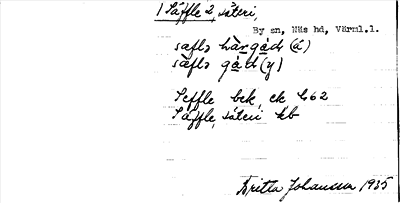 1 Säffle 2, säteri,
By sn, Näs hd, Värml.l.
saflə hàrgạ́d (á)
sàflə gạ́d (y)
Seffle bek, ek 462
Säffle, säteri kb
Britta Johansson 1935